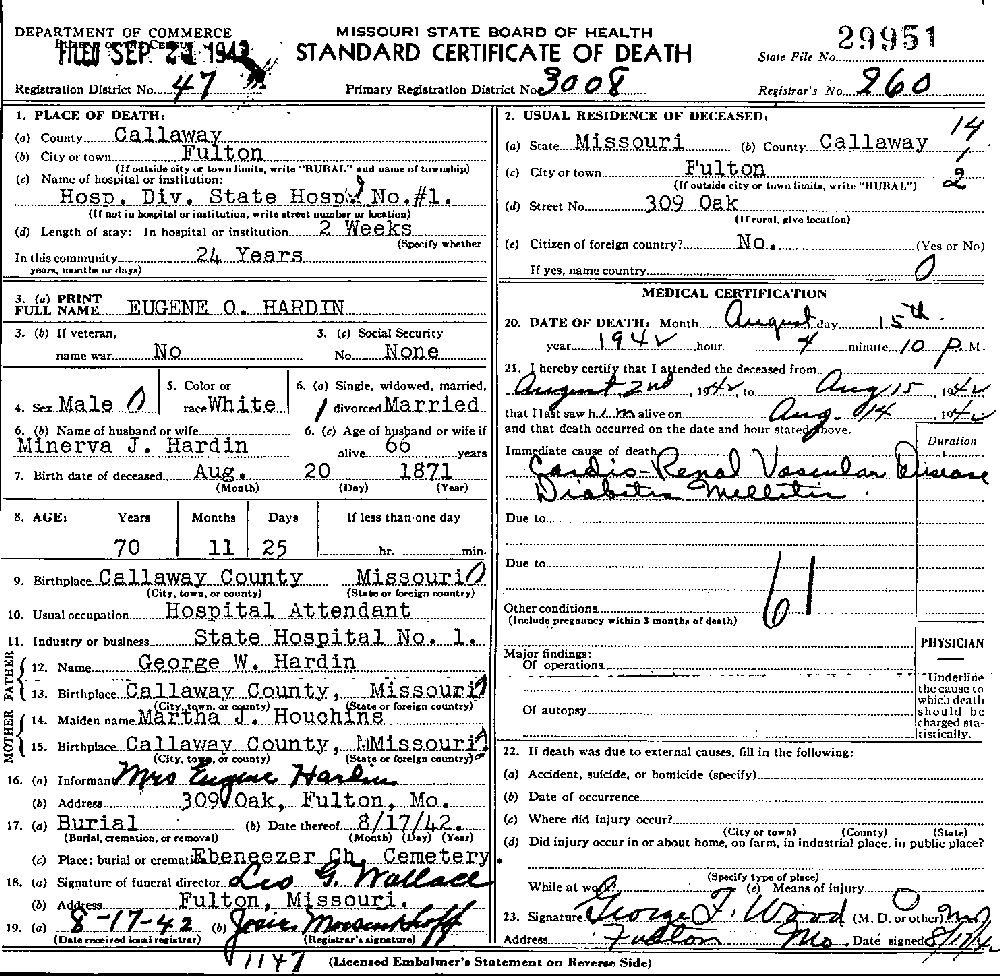 DEPARTMENT OF COMMERCE
MISSOURI STATE BOARD OF HEALTH
STANDARD CERTIFICATE OF DEATH
FILED SEP 21 1942
State File No. 29951
Registration District No. 47
Primary Registration District No. 3008
Registrar's No. 260
1. PLACE OF DEATH:
(a) County Callaway
(b) City or town Fulton
(If outside city or town limits, write "RURAL" and name of township)
(c) Name of hospital or institution:
Hosp. Div. State Hosp. No.#1.
(If not in hospital or institution, write street number or location)
(d) Length of stay: In hospital or institution 2 Weeks
(Specify whether
In this community 24 Years
years, months or days)
2. USUAL RESIDENCE OF DECEASED:
14
1
2
(a) State Missouri (b) County Callaway
(c) City or town Fulton
(If outside city or town limits, write "RURAL")
(d) Street No. 309 Oak
(If rural, give location)
(e) Citizen of foreign country? No. (Yes or No)
If yes, name country 0
3. (a) PRINT FULL NAME EUGENE O. HARDIN
3. (b) If veteran, name war No
3. (c) Social Security No. None
4. Sex Male 0
5. Color or race White
6. (a) Single, widowed, married, divorced Married
1
6. (b) Name of husband or wife
Minerva J. Hardin
6. (c) Age of husband or wife if alive 66 years
7. Birth date of deceased Aug. 20 1871
(Month) (Day) (Year)
8. AGE: Years Months Days If less than one day
70 11 25 hr. min.
9. Birthplace Callaway County Missouri 0
(City, town, or county) (State or foreign country)
10. Usual occupation Hospital Attendant
11. Industry or business State Hospital No. 1.
FATHER
12. Name George W. Hardin
13. Birthplace Callaway County, Missouri 0
(City, town, or county) (State or foreign country)
MOTHER
14. Maiden name Martha J. Houchins
15. Birthplace Callaway County, Missouri
(City, town, or county) (State or foreign country)
16. (a) Informant Mrs Eugene Hardin
(b) Address 309 Oak, Fulton, Mo.
17. (a) Burial (b) Date thereof 8/17/42.
(Burial, cremation, or removal) (Month) (Day) (Year)
(c) Place: burial or cremation Ebeneezer Ch. Cemetery.
18. (a) Signature of funeral director Leo G. Wallace
(b) Address Fulton, Missouri.
19. (a) 8-17-42 (b) Josie
(Date received local registrar) (Registrar's signature)
1147
MEDICAL CERTIFICATION
20. DATE OF DEATH: Month August day 15th
year 1942 hour 4 minute 10 P.M.
21. I hereby certify that I attended the deceased from
August 2nd, 1942, to Aug 15, 1942
that I last saw him alive on Aug. 14, 1942
and that death occurred on the date and hour stated above.
Duration
Immediate cause of death
Cardio-Renal Vascular Disease
Diabetis Mellitis
Due to
Due to
61
Other conditions
(Include pregnancy within 3 months of death)
Major findings:
Of operations
Of autopsy
PHYSICIAN
Underline the cause to which death should be charged statistically.
22. If death was due to external causes, fill in the following:
(a) Accident, suicide, or homicide (specify)
(b) Date of occurrence
(c) Where did injury occur?
(City or town) (County) (State)
(d) Did injury occur in or about home, on farm, in industrial place, in public place?
(Specify type of place)
While at work? (e) Means of injury 0
23. Signature George F. Wood (M. D. or other) M.D.
Address Fulton Mo. Date signed 8/17/42
(Licensed Embalmer's Statement on Reverse Side)